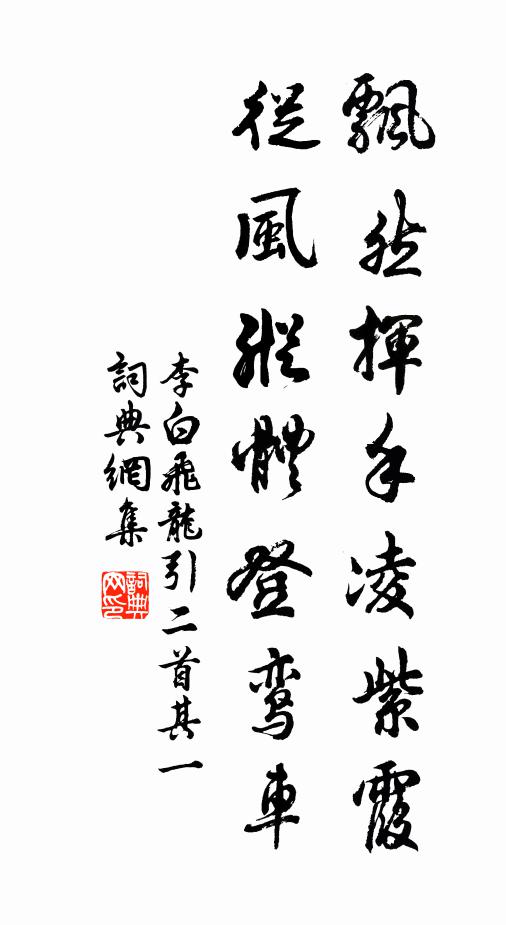 飄然揮手凌紫霞
從風縱體登鸾車
李白飛龍引二首其一
詞典網集
詞典网印